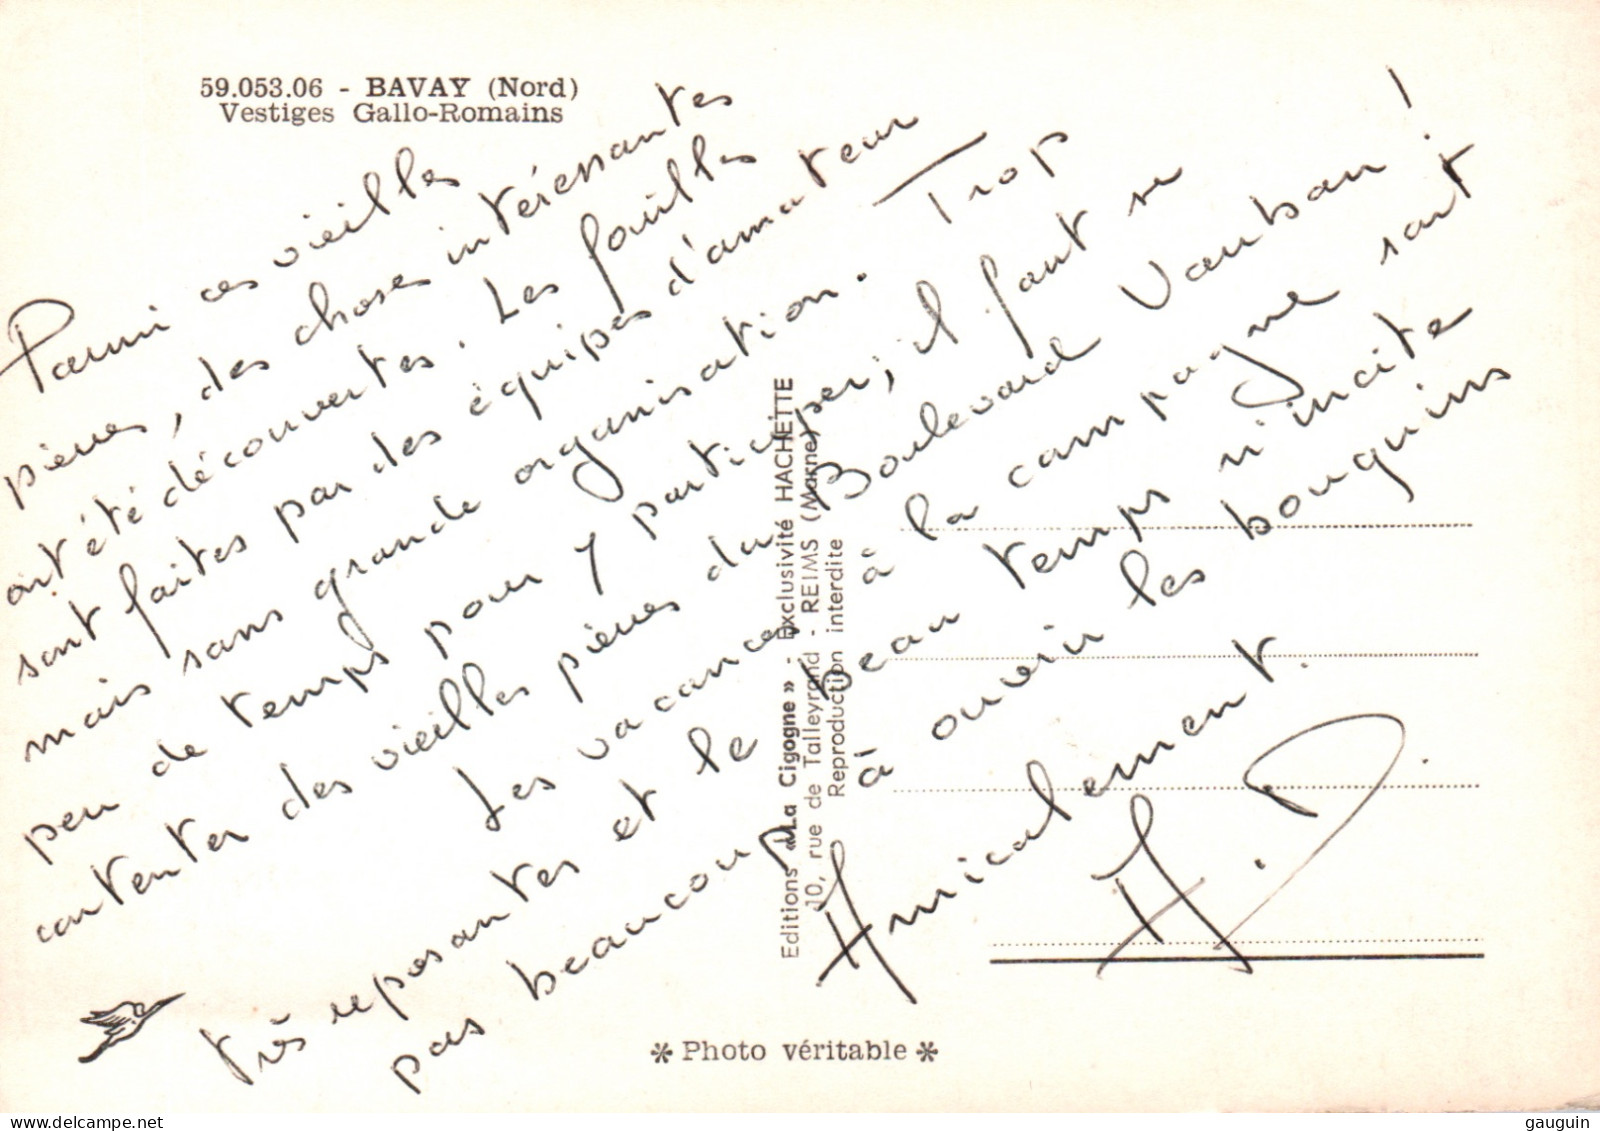 59.053.06 - BAVAY (Nord)
Vestiges Gallo-Romains
Parmi ces vieilles
pierres, des choses intéressantes
ont été découvertes. Les fouilles
sont faites par des équipes d'amateur
mais sans grande organisation. Trop
peu de temps pour y participer; il faut se
contenter des vieilles pierres du Boulevard Vauban !
Les vacances à la campagne sont
très reposantes et le beau temps n'incite
pas beaucoup à ouvrir les bouquins
Amicalement.
A.D.
Editions « La Cigogne » - Exclusivité HACHETTE
10, rue de Talleyrand - REIMS (Marne)
Reproduction interdite
* Photo véritable *
gauguin © www.delcampe.net